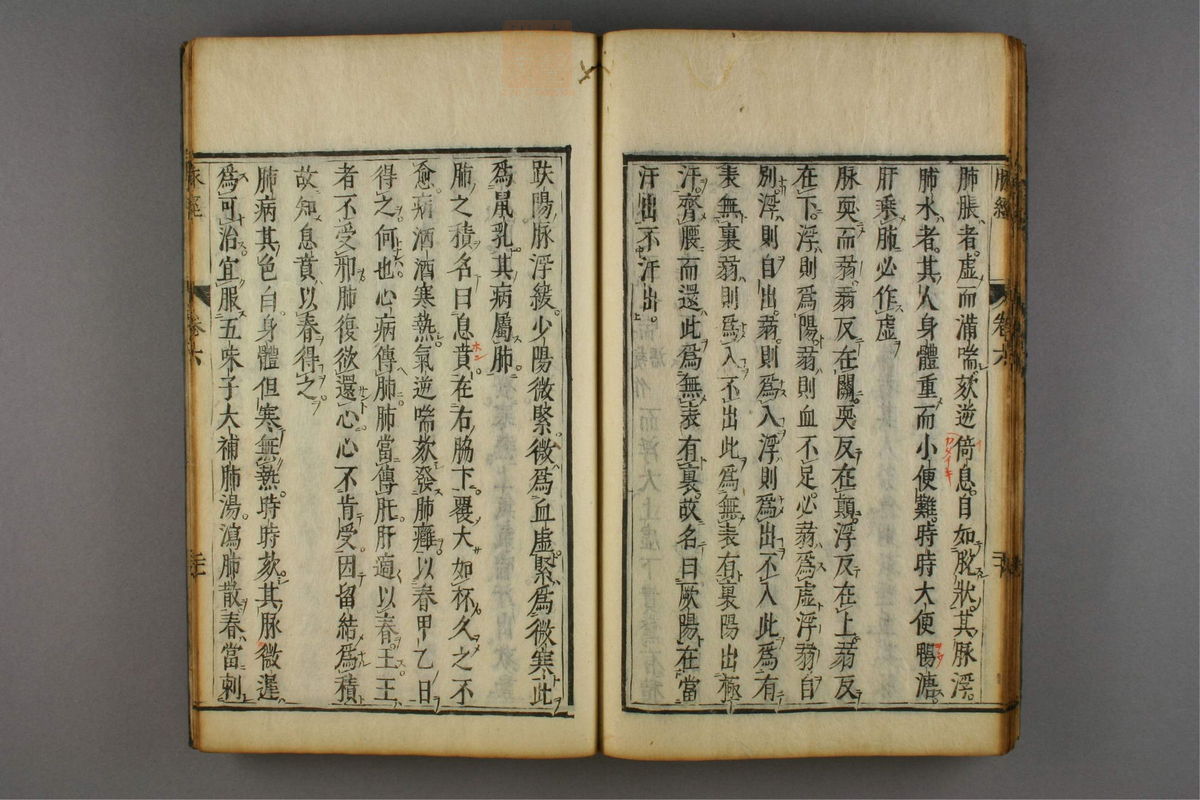 脉經
卷六
肺脹者虚而滿喘欬逆倚息目如脫狀其脉浮
肺水者其人身體重而小便難時時大便鴨溏
肝乘肺必作虚
脉耎而弱弱反在關耎反在顛浮反在上弱反
在下浮則爲陽弱則血不足必弱爲虚浮弱自
別浮則自出弱則爲入浮則爲出不入此爲有
表無裏弱則爲入不出此爲無表有裏陽出極
汗齊腰而還此爲無表有裏故名曰厥陽在當
汗出不汗出
趺陽脉浮緩少陽微緊微爲血虚緊爲微寒此
爲鼠乳其病屬肺
肺之積名曰息賁在右脇下覆大如杯久久不
愈病洒洒寒熱氣逆喘欬發肺癰以春甲乙日
得之何也心病傳肺肺當傳肝肝適以春王王
者不受邪肺復欲還心心不肯受因留結爲積
故知息賁以春得之
肺病其色白身體但寒無熱時時欬其脉微遲
爲可治宜服五味子大補肺湯瀉肺散春當刺
脉經
卷六